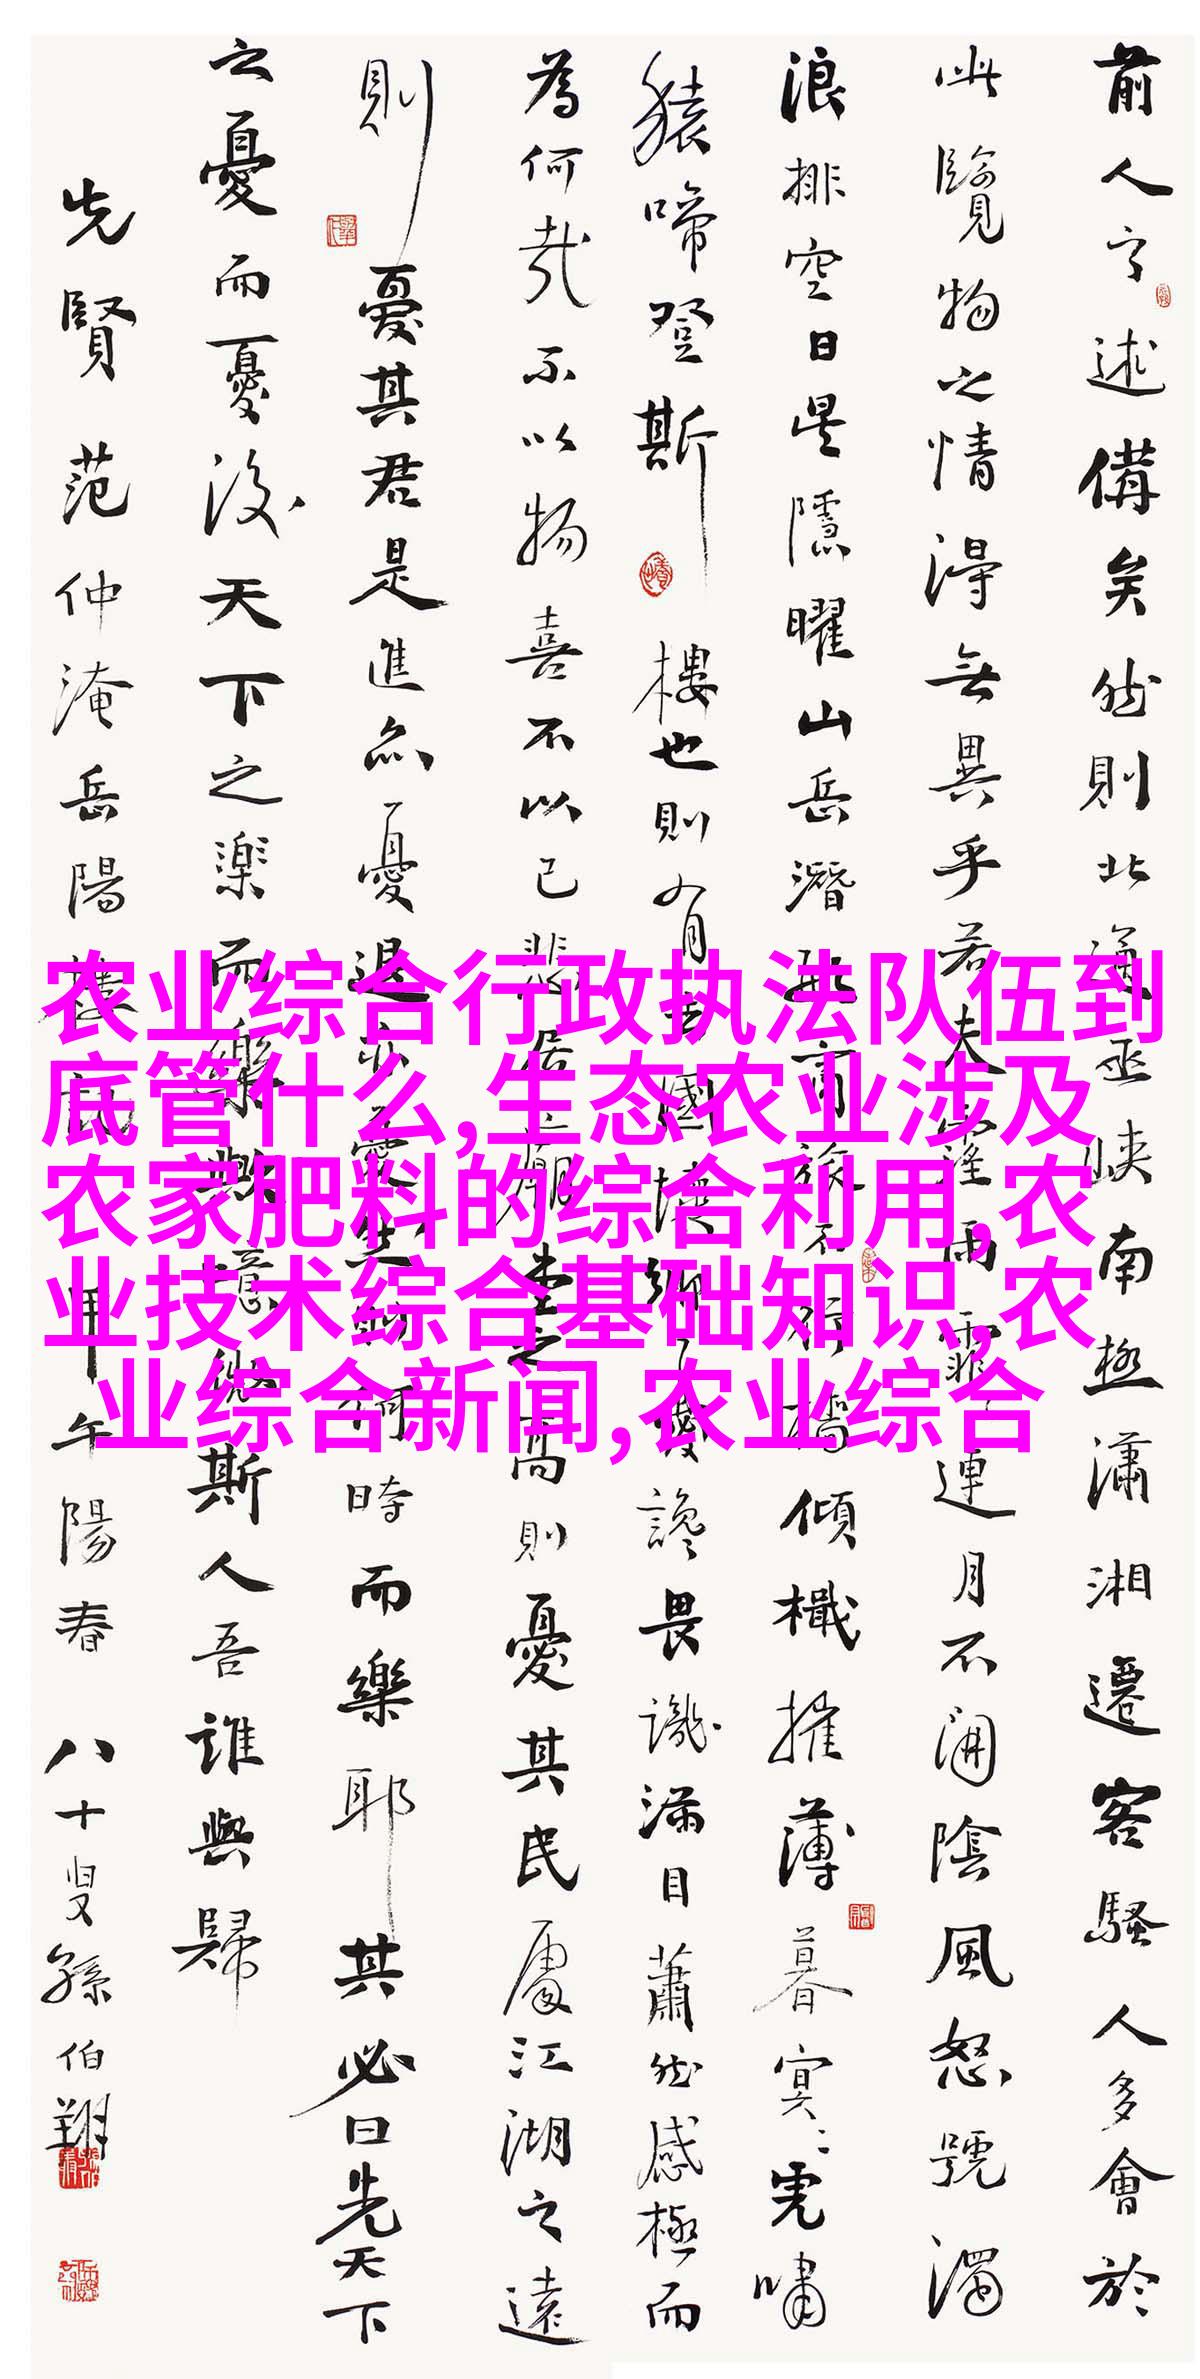 前人之述備矣然則北通巫峽南極瀟湘遷客騷人多會於
此覽物之情得無異乎若夫霪雨霏霏連月不開陰風怒號濁
浪排空日星隱曜山岳潛形商旅不行檣傾檝摧薄暮冥冥虎嘯
猿啼登斯樓也則有去國懷鄉憂讒畏譏滿目蕭然感極而
為何哉不以物喜不以己悲居廟堂之高則憂其民處江湖之遠
則憂其君是進亦憂退亦憂然則何時而樂耶其必曰先天下
之憂而憂後天下之樂而樂歟噫微斯人吾誰與歸
先賢范仲淹岳陽樓記甲午陽春 八十叟孫伯翔
农业综合行政执法队伍到
底管什么,生态农业涉及
农家肥料的综合利用,农
业技术综合基础知识,农
业综合新闻,农业综合